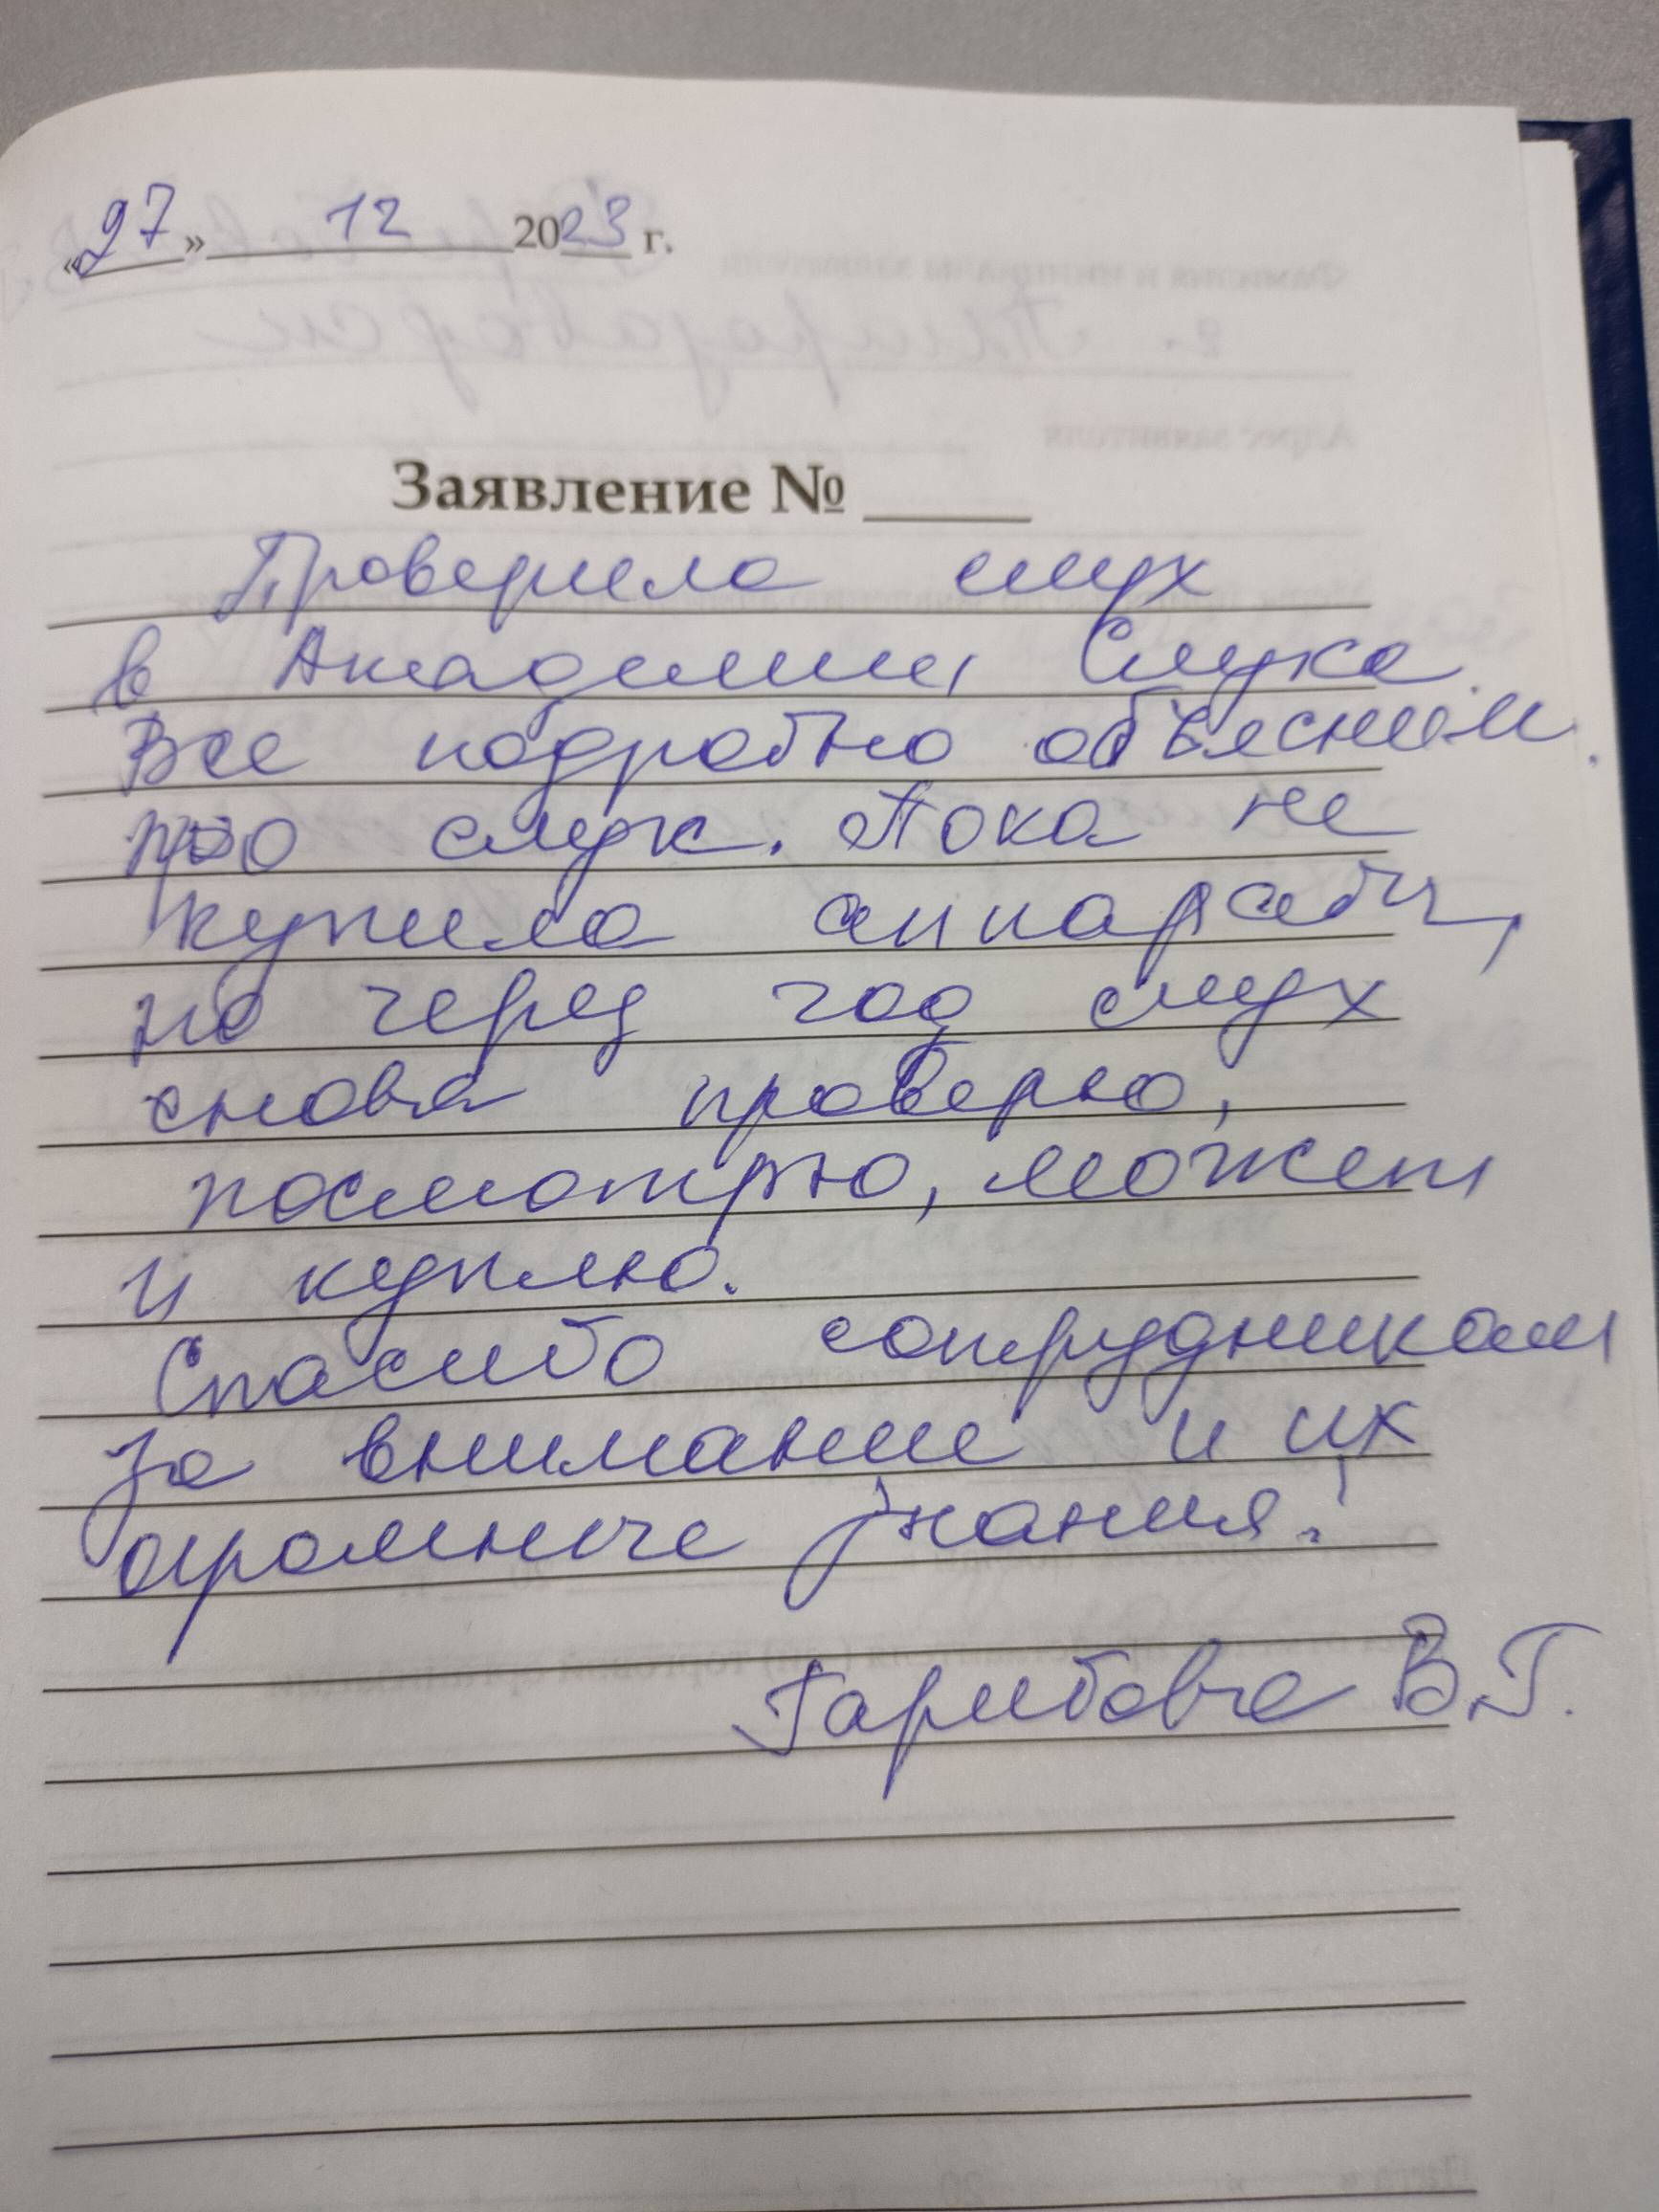 «27» 12 2023 г.
Заявление № ____
Проверила слух
в Академии Слуха.
Все подробно объяснили
про слух. Пока не
купила аппараты,
но через год слух
снова проверю,
посмотрю, может
и куплю.
Спасибо сотрудникам
за внимание и их
огромные знания!
Гарибова В.Г.